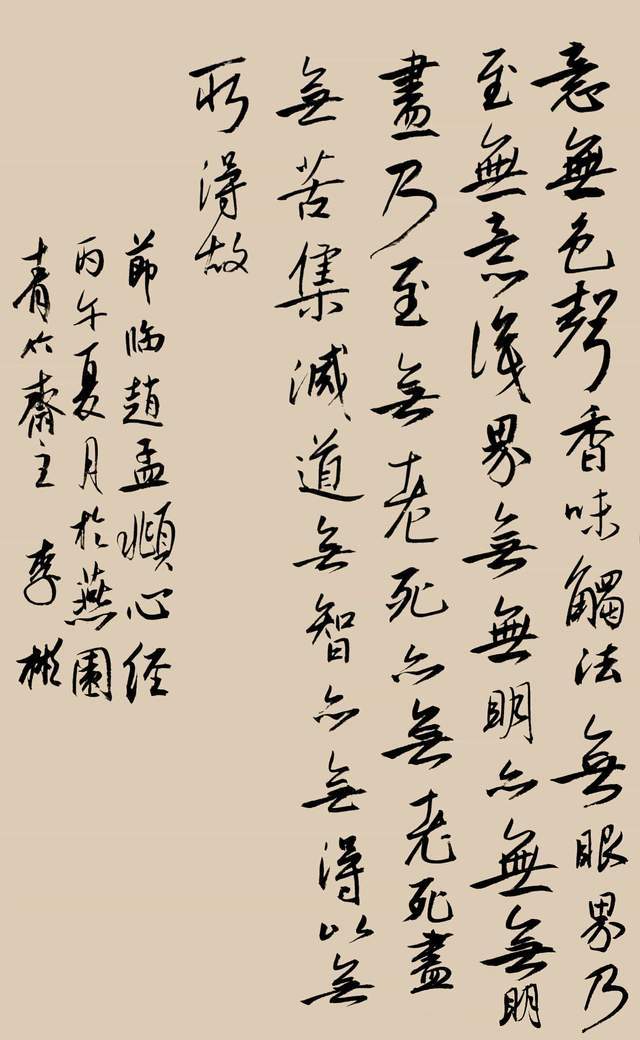 意無色聲香味觸法無眼界乃
至無意識界無無明亦無無明
盡乃至無老死亦無老死盡
無苦集滅道無智亦無得以無
所得故
節临趙孟頫心经
丙午夏月於燕園
青竹齋主 李彬